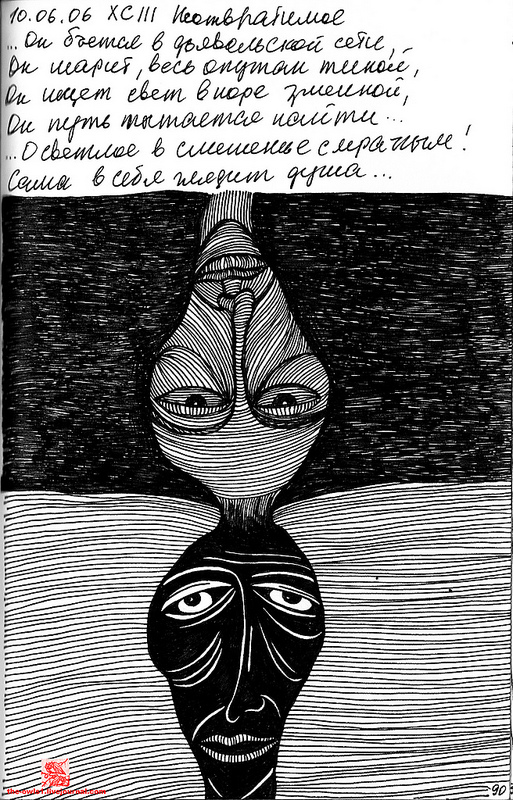 10.06.06 XCIII Неотвратимое
...Он бьется в дьявольской сети,
Он шарит, весь опутан тиной,
Он ищет свет в норе змеиной,
Он путь пытается найти...
...О светлое в смешенье с мрачным!
Сама в себя глядит душа...
90